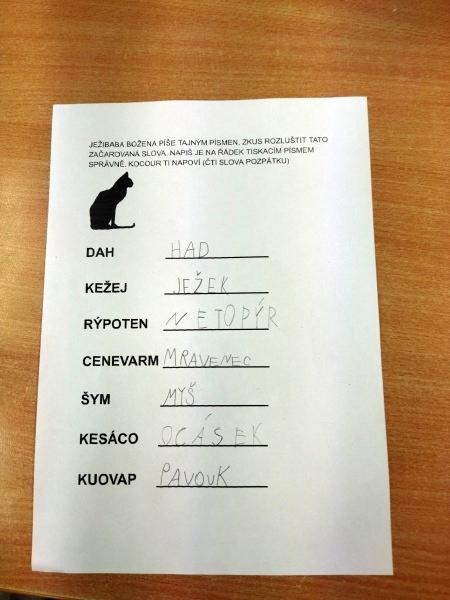 JEŽIBABA BOŽENA PÍŠE TAJNÝM PÍSMEN, ZKUS ROZLUŠTIT TATO
ZAČAROVANÁ SLOVA. NAPIŠ JE NA ŘÁDEK TISKACÍM PÍSMEM
SPRÁVNĚ, KOCOUR TI NAPOVÍ (ČTI SLOVA POZPÁTKU)
DAH HAD
KEŽEJ JEŽEK
RÝPOTEN NETOPÝR
CENEVARM MRAVENEC
ŠYM MYŠ
KESÁCO OCÁSEK
KUOVAP PAVOUK